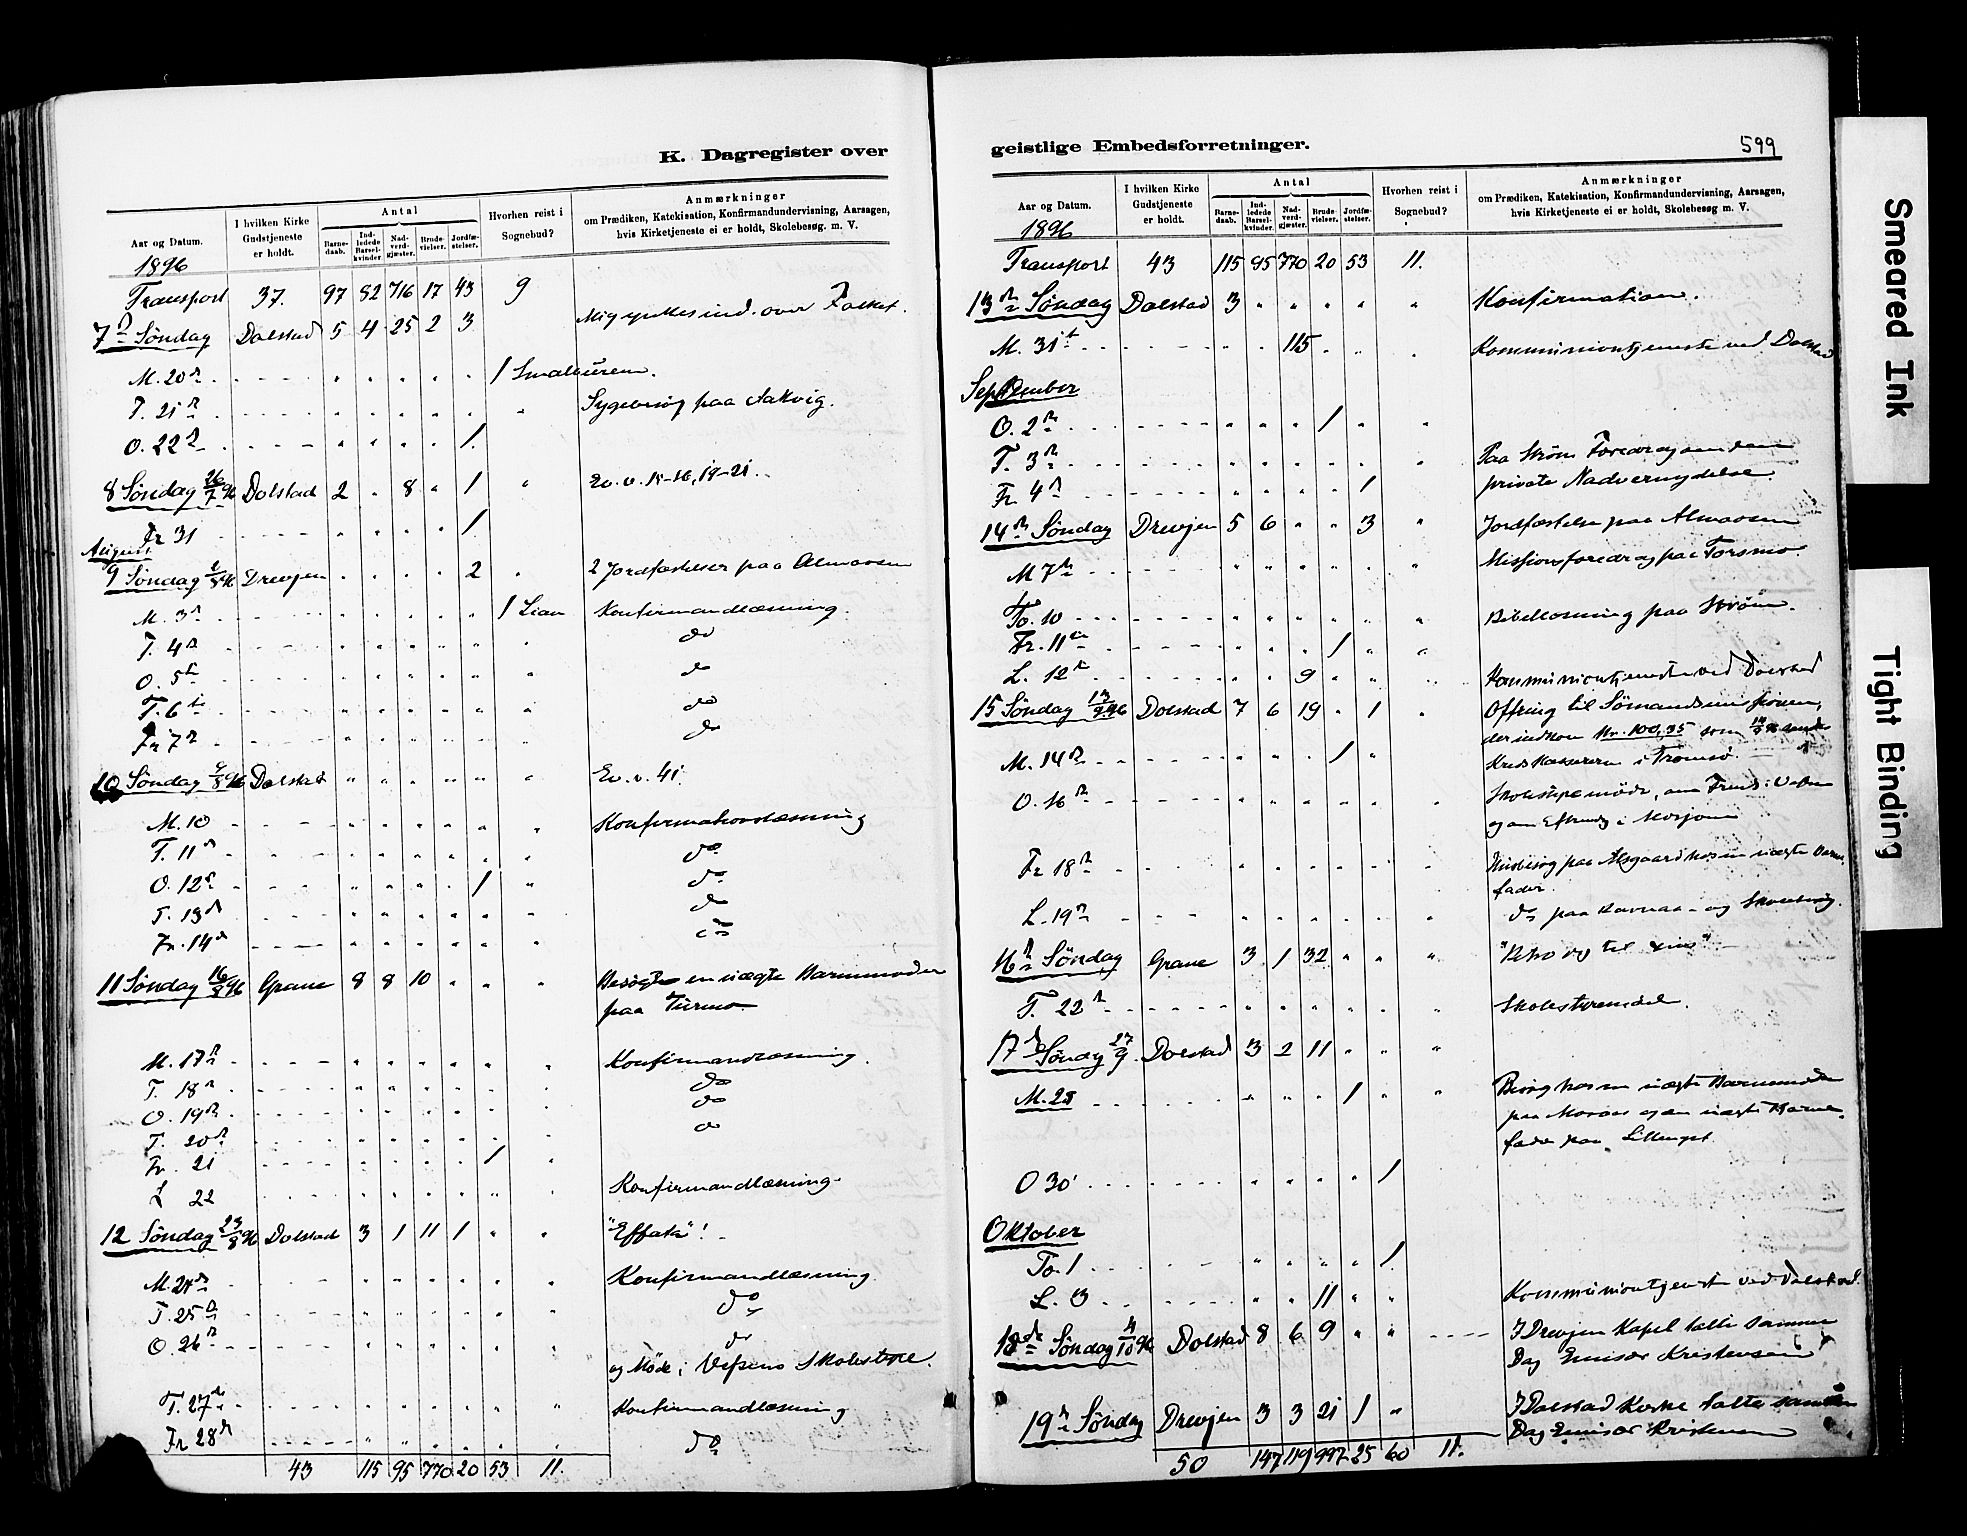 K. Dagregister over
Aar og Datum. I hvilken Kirke Gudstjeneste er holdt. Antal Barnedaab. Indledede Barselkvinder. Nadverdgjæster. Brudevielser. Jordfæstelser. Hvorhen reist i Sognebud? Anmærkninger om Prædiken, Katekisation, Konfirmandundervisning, Aarsagen, hvis Kirketjeneste ei er holdt, Skolebesøg. m. V.
1896
Transport 37. 97 82 716 17 43 9
7d Søndag Dolstad 5 4 25 2 3 Mig ynkes ind. over Folket.
M. 20d 1
T. 21d Sygebesøg paa
O. 22d 1.
8 Søndag 26/7 96 Dolstad 2 8 1 Ev. v. 15-16, 19-21.
Fr 31 1
August
9 Søndag 2/8 96 Drevjen 2 2 Jordfæstelser paa Almaasen
M. 3d 1 Lian Konfirmandlæsning.
T. 4d do
O. 5te do
T. 6te do
Fr 7d do
10 Søndag 9/8 96 Dolstad Ev. v. 41.
M. 10 Konfirmationslæsning
T. 11d do
O. 12d 1 do
T. 13d do
Fr. 14d do
11 Søndag 16/8 96 Grane 8 8 10 Besøgte en uægte Barnemoder
paa
M. 17d Konfirmandlæsning.
T. 18d do
O. 19d do
T. 20d do
Fr. 21 1
L 22 Konfirmandlæsning.
12 Søndag 23/8 96 Dolstad 3 1 11 1 "Effata"!
M. 24d Konfirmandlæsning.
T. 25d do
O. 26d do
og Møde i Vefsens Skolestyre.
T. 27d Konfirmandlæsning
Fr 28d do
43 115 95 770 20 53 11.
geistlige Embedsforretninger.
599
Aar og Datum. I hvilken Kirke Gudstjeneste er holdt. Antal Barnedaab. Indledede Barselkvinder. Nadverdgjæster. Brudevielser. Jordfæstelser. Hvorhen reist i Sognebud? Anmærkninger om Prædiken, Katekisation, Konfirmandundervisning, Aarsagen, hvis Kirketjeneste ei er holdt, Skolebesøg m. V.
1896
Transport 43 115 95 770 20 53 11.
13d Søndag Dolstad 3 Konfirmation.
M. 31t 115 Kommuniontjeneste ved Dolstad
September
O. 2d 1
T. 3d Paa Strøm Foredrag om den
Fr. 4d 1 private Nadvernydelse.
14d Søndag Drevjen 5 6 3 Jordfæstelse paa Almaasen
M 7d Missionsforedrag paa Forsmo
To. 10 Bibellæsning paa Strøm.
Fr. 11te 1
L. 12te 9 Kommuniontjeneste ved Dolstad
15 Søndag 13/9 96 Dolstad 7 6 19 1 Ofring til Sømandsmissionen,
der indkom Kr. 100,35 som 14/9 96 sendt
M. 14d 1 Kredskassereren i Tromsø.
O. 16d Skolestyremøde, om Frmd. i Vefsen
og om Eftmdg i Mosjøen
Fr 18d Husbesøg paa hos en uægte Barne-
fader.
L. 19d do paa og
16d Søndag Grane 3 1 32
T. 22d Skolestyremøde.
17d Søndag 27/9 Dolstad 3 2 11
M. 28 1 Besøg hos en uægte Barnemoder
paa og en uægte Barne-
fader paa
O 30 1
Oktober
To. 1 1.
L. 3 11 Kommuniontjeneste ved Dolstad.
18de Søndag 4/10 96 Dolstad 8 6 9 I Drevjen Kapel talte samme
Dag Emisær Kristensen
19d Søndag Drevjen 3 3 21 1 I Dolstad Kirke talte samme
Dag Emisær Kristensen
50 147 119 997 25 60 11.
Smeared Ink
Tight Binding